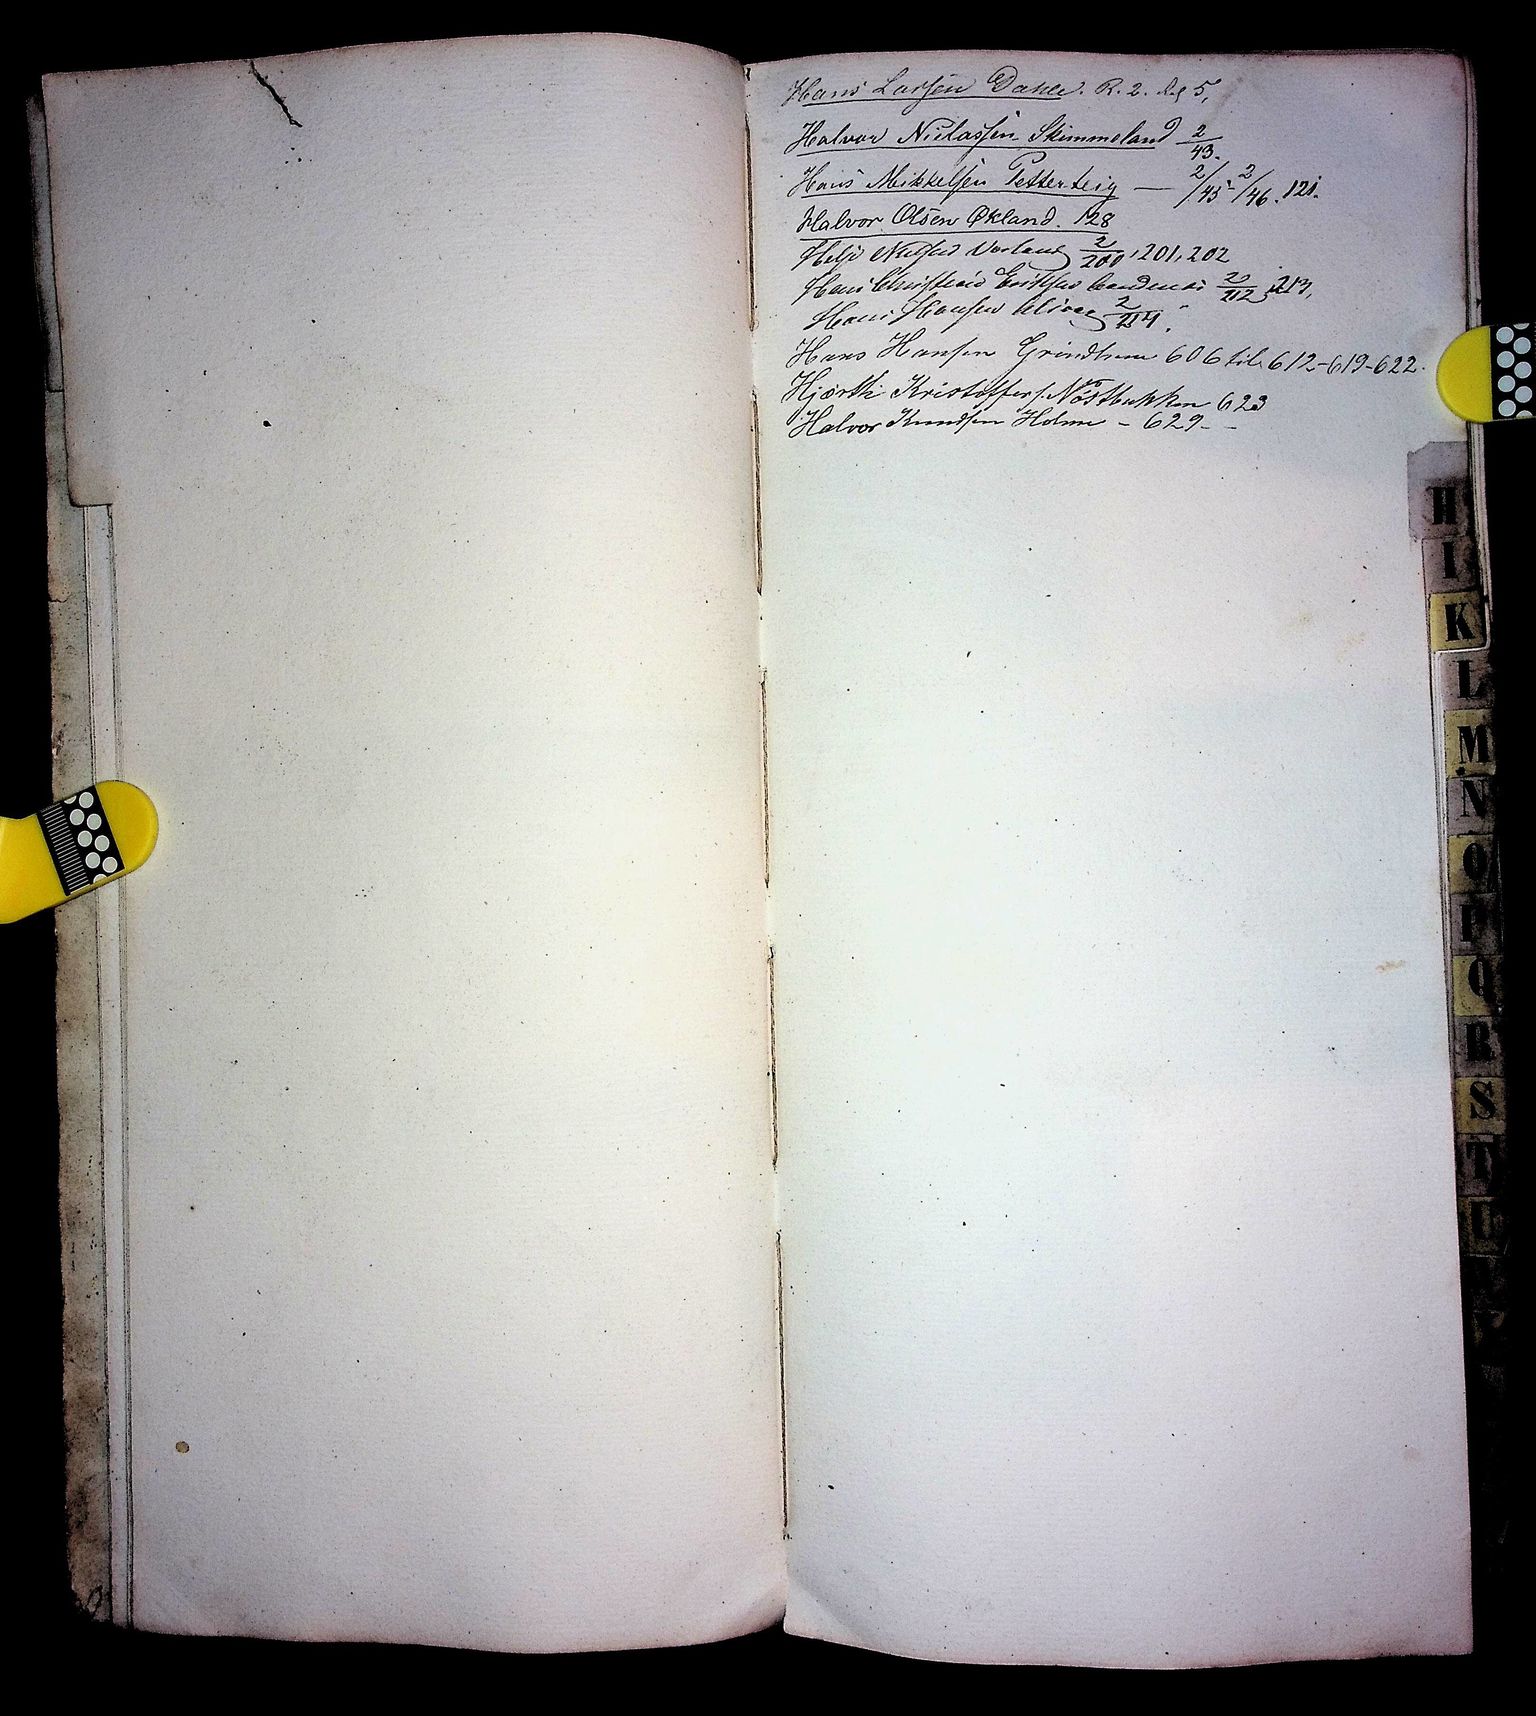 Hans Larsen Dahle. R. 2. 5,
Halvor Nielassen Skimmeland 2/43.
Hans Mikkelsen Petterteig — 2/45 - 2/46. 121.
Halvor Olsen Økland. 128
Helje 2/200, 201, 202
Hans Eriksen 2/212, 213,
Hans Hansen 2/214.
Hans Hansen Grindheim 606 til 612-619-622.
Hjørth Kristoffers. Nøstbakken 623
Halvor Knudsen Holme - 629-
H
I
K
L
M
N
O
P
Q
R
S
T
U